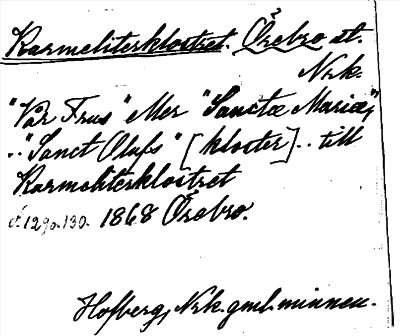 Karmeliterklostret. Örebro st.
Nrk.
"Vår Frus" eller "Sanctæ Mariæ",
.. "Sanct Olafs" [kloster] .. till
Karmeliterklostret
s. 129 o. 130. 1868 Örebro.
Hofberg, Nrk. gml. minnen.